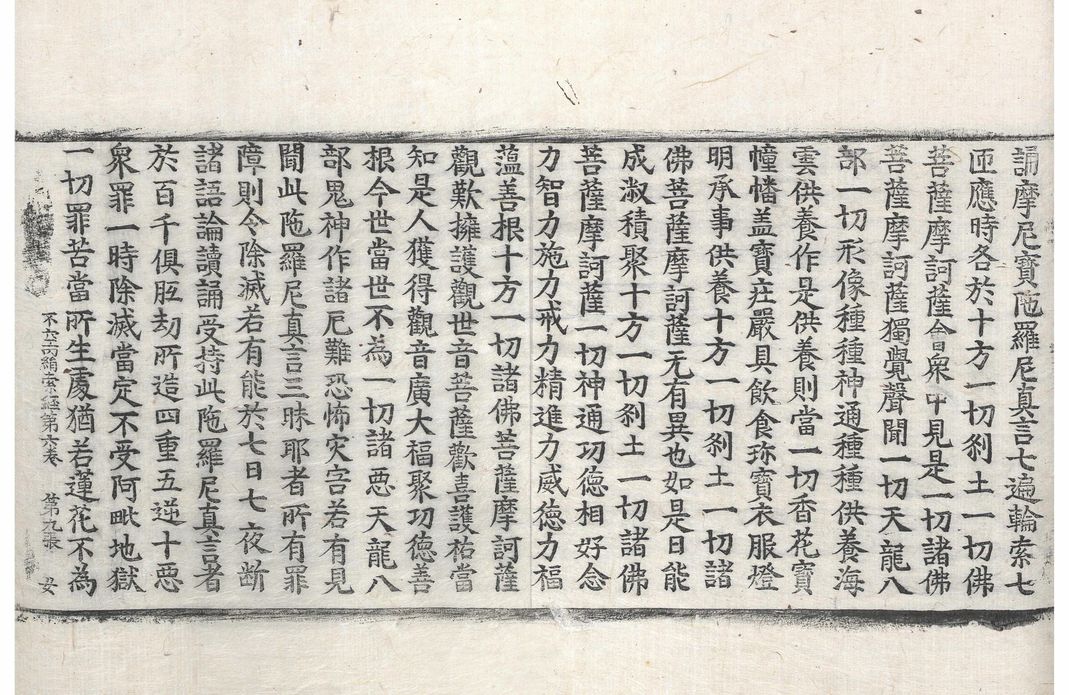 誦摩尼寶陁羅尼真言七遍輪索七
迊應時各於十方一切刹土一切佛
菩薩摩訶薩會衆中見是一切諸佛
菩薩摩訶薩獨覺聲聞一切天龍八
部一切形像種種神通種種供養海
雲供養作是供養則當一切香花寶
幢幡盖寶莊嚴具飲食珎寶衣服燈
明承事供養十方一切刹土一切諸
佛菩薩摩訶薩无有異也如是日能
成淑積聚十方一切刹土一切諸佛
菩薩摩訶薩一切神通功德相好念
力智力施力戒力精進力威德力福
薀善根十方一切諸佛菩薩摩訶薩
觀歎擁護觀世音菩薩歡喜護祐當
知是人獲得觀音廣大福聚功德善
根今世當世不為一切諸惡天龍八
部鬼神作諸厄難恐怖灾害若有見
聞此陁羅尼真言三昧耶者所有罪
障則令除滅若有能於七日七夜断
諸語論讀誦受持此陁羅尼真言者
於百千俱胝劫所造四重五逆十惡
衆罪一時除滅當定不受阿毗地獄
一切罪苦當所生處猶若蓮花不為
不空羂索經第六卷 第九張 女